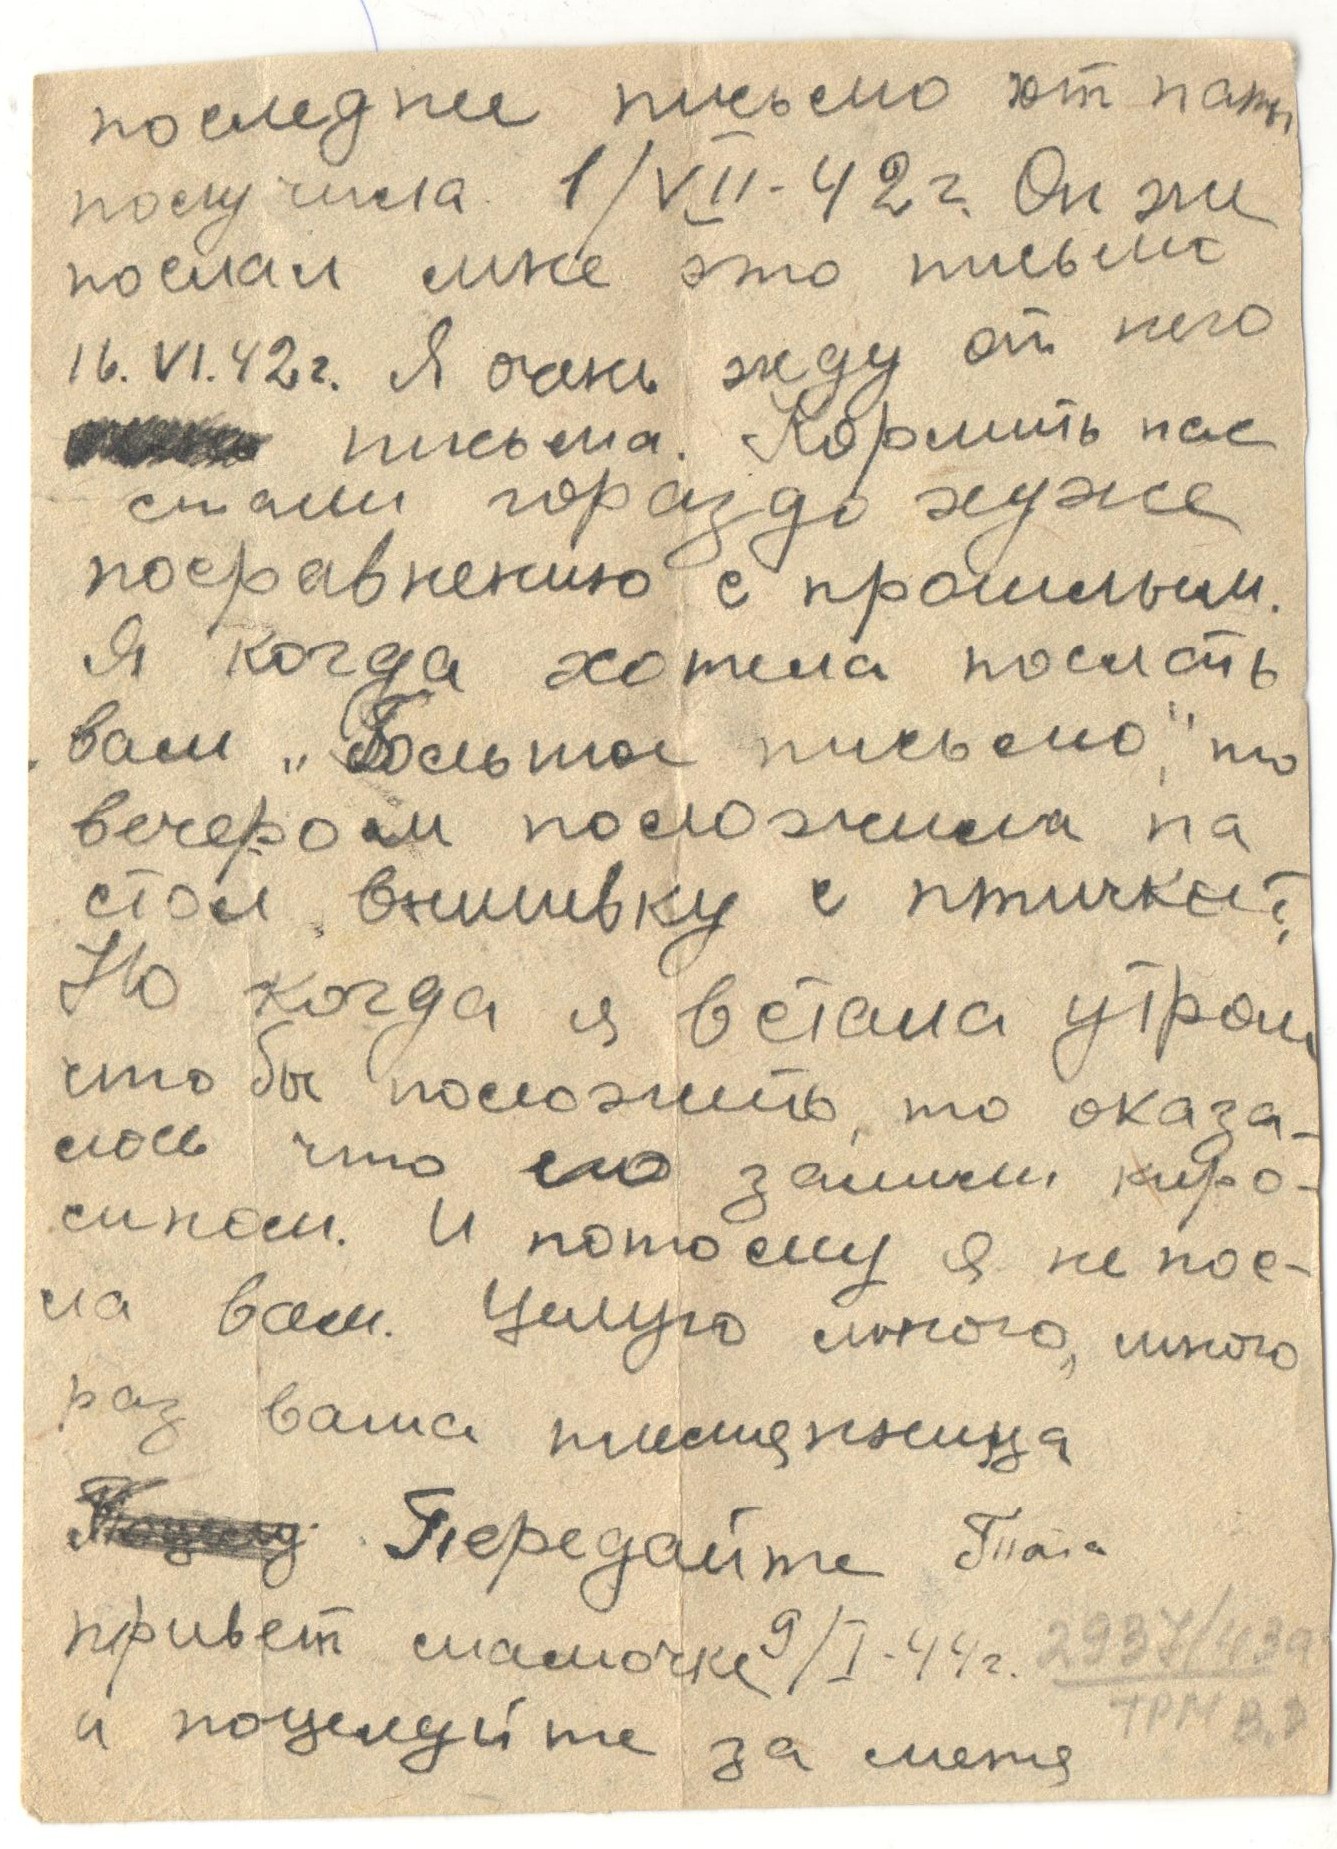 последнее письмо от папы
получила 1/VII-42 г. Он же
послал мне это письмо
16.VI.42 г. Я очень жду от него
письма. Кормить нас
стали гораздо хуже
посравнению с прошлым.
Я когда хотела послать
вам „Большое письмо", то
вечером положила на
стол вышивку с птичкой,
Но когда я встала утром
что бы положить, то оказа-
лось что её залили киро-
сином. И потому я не пос-
ла вам. Целую много, много
раз ваша племянница
Передайте Тата
привет мамочке 9/I-44 г.
и поцелуйте за меня
2937/439
ТРМ В.Д